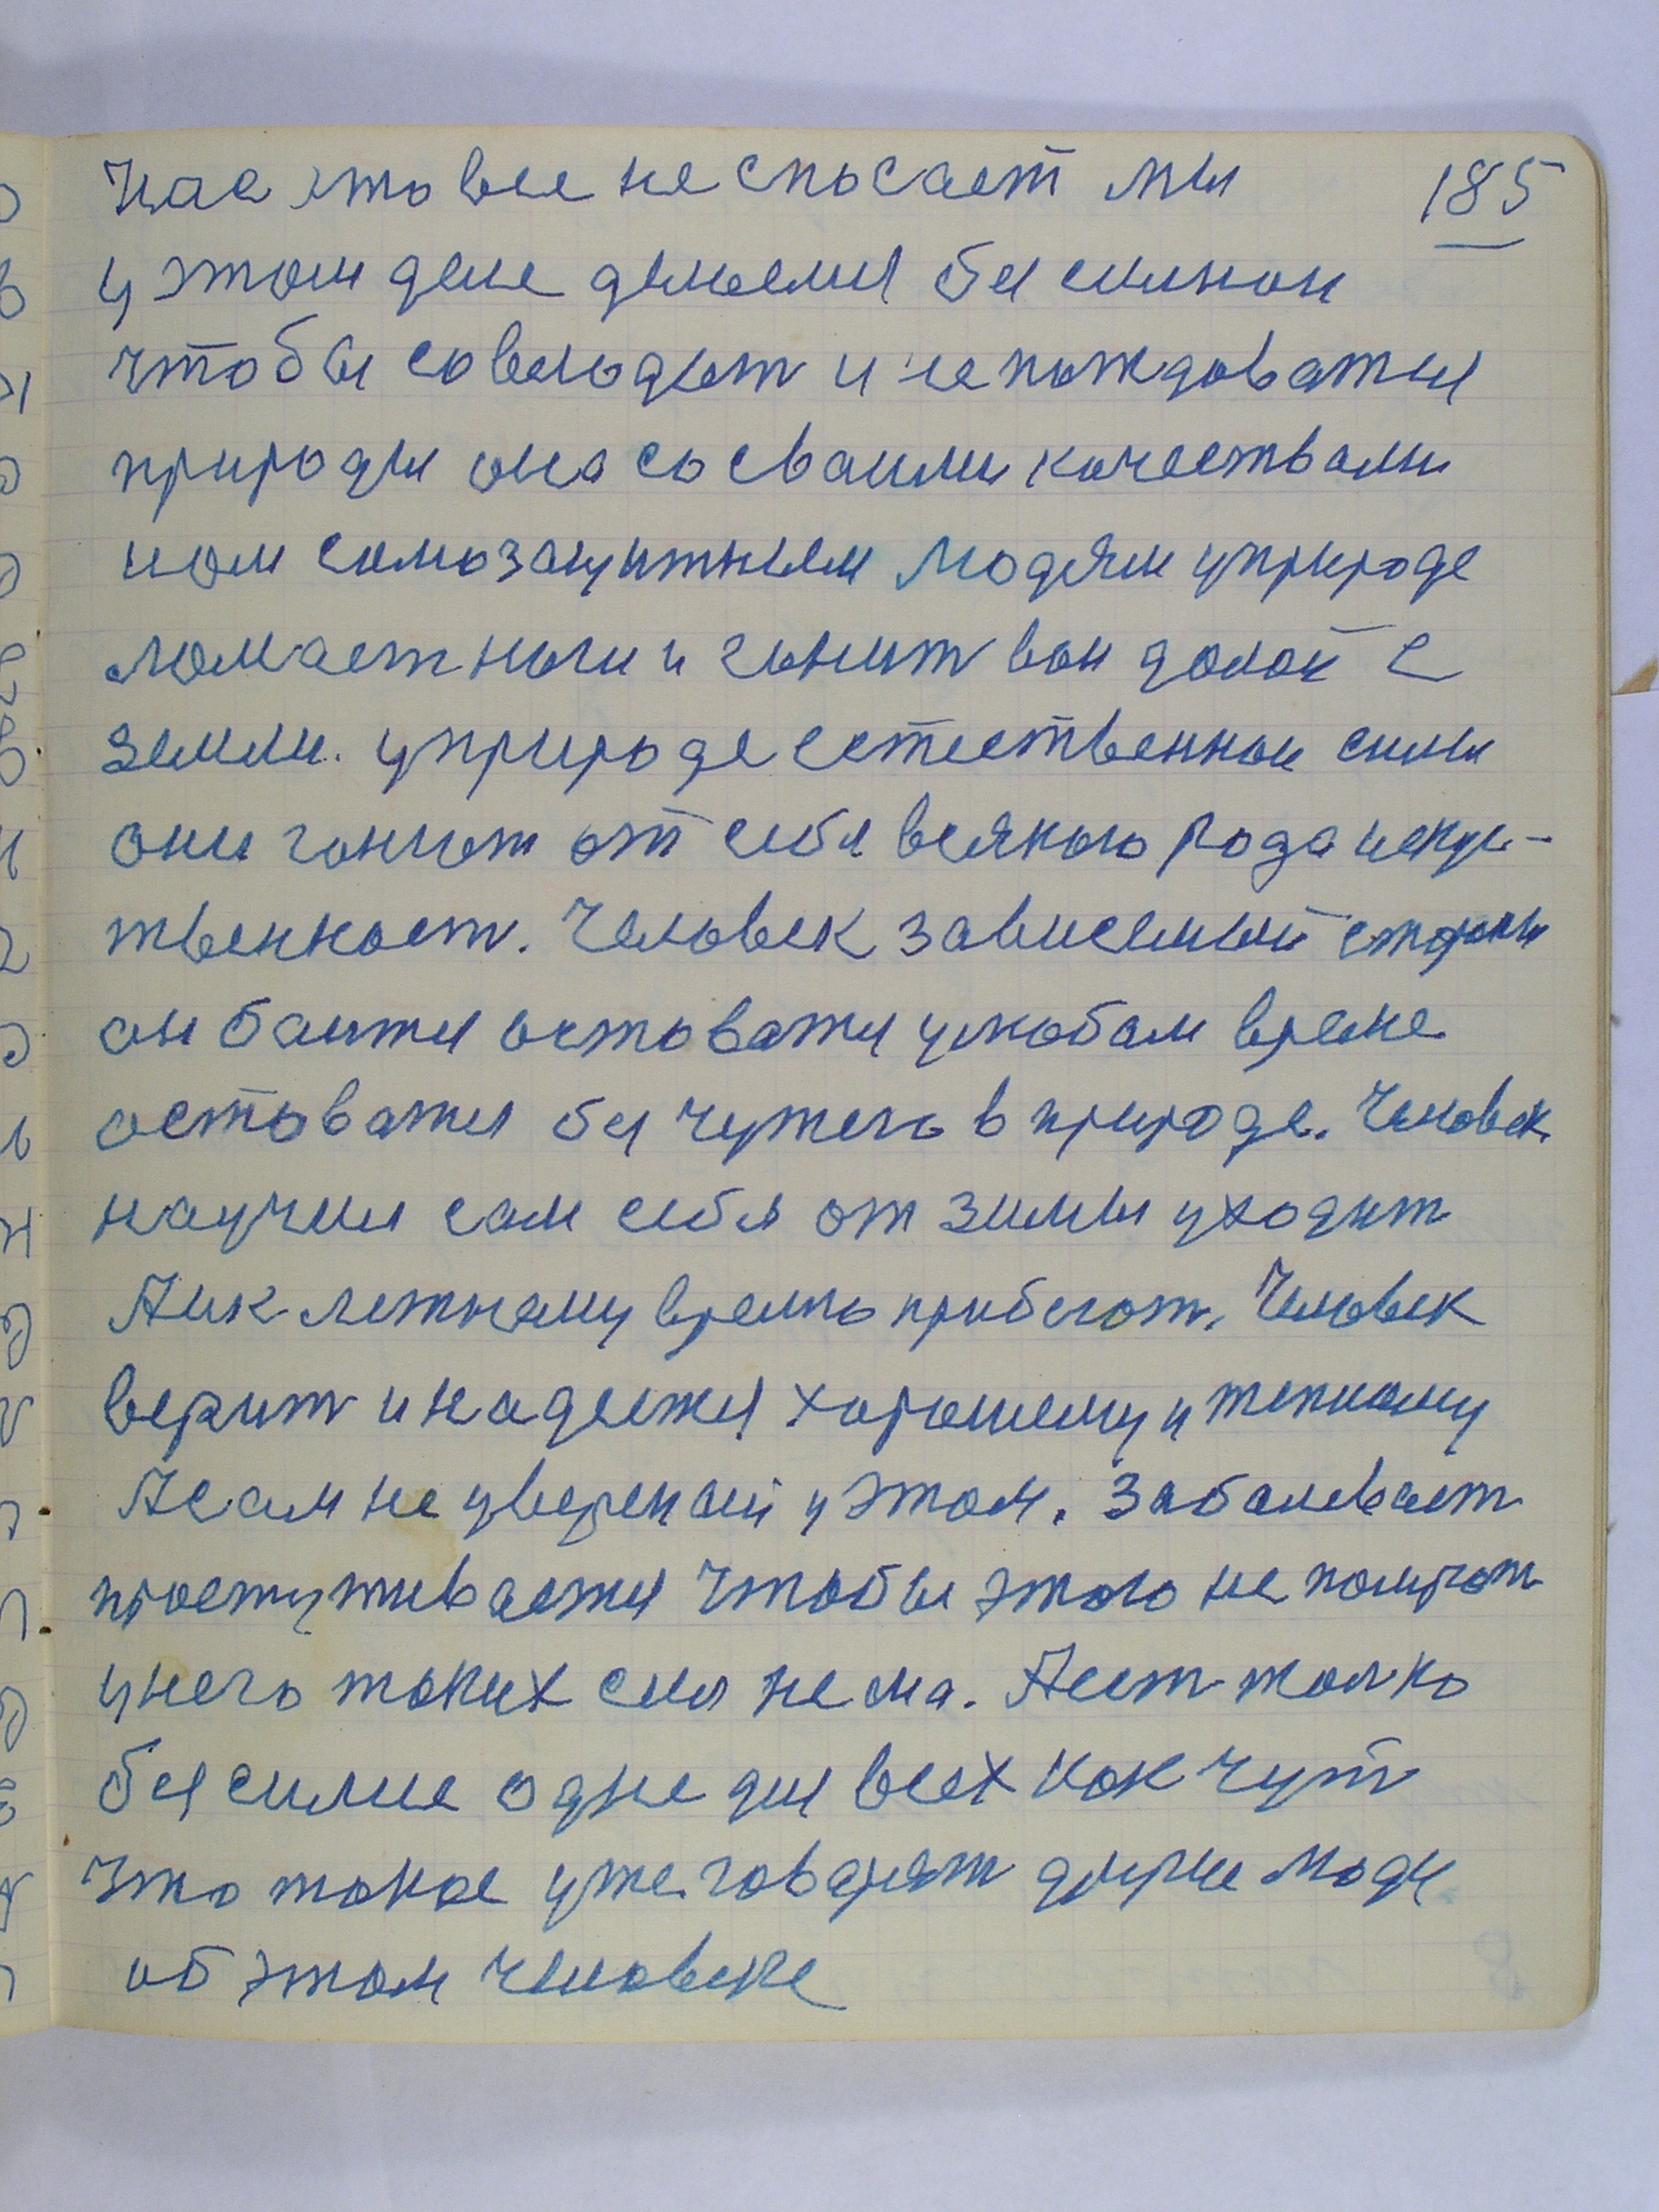 185
нас это все не спасает мы
у этом деле делаемся бя силнои
чтобы совелодат и не нождоватся
природы она со своими качествами
ном самозащитным людям у природе
ломает ноги и гонит вон долой с
земли. у природе естественнои силы
они гонют от себя всякого рода искус-
твенност. Человек зависемый стороны
он боится остоватся у любом време
остоватся бя чужего в природе. Человек
научился сам себя от зимы уходит
А и к летнему время прибегат. Человек
верит и надеется хорошему и теплому
А сам не уверенай у этом. Заболевает
простуживается Чтобы этого не получат
у него таких сил нема. А ест толко
бя силие одне для всех как чут
Что такое уже говорят другие люди
об этом человеке